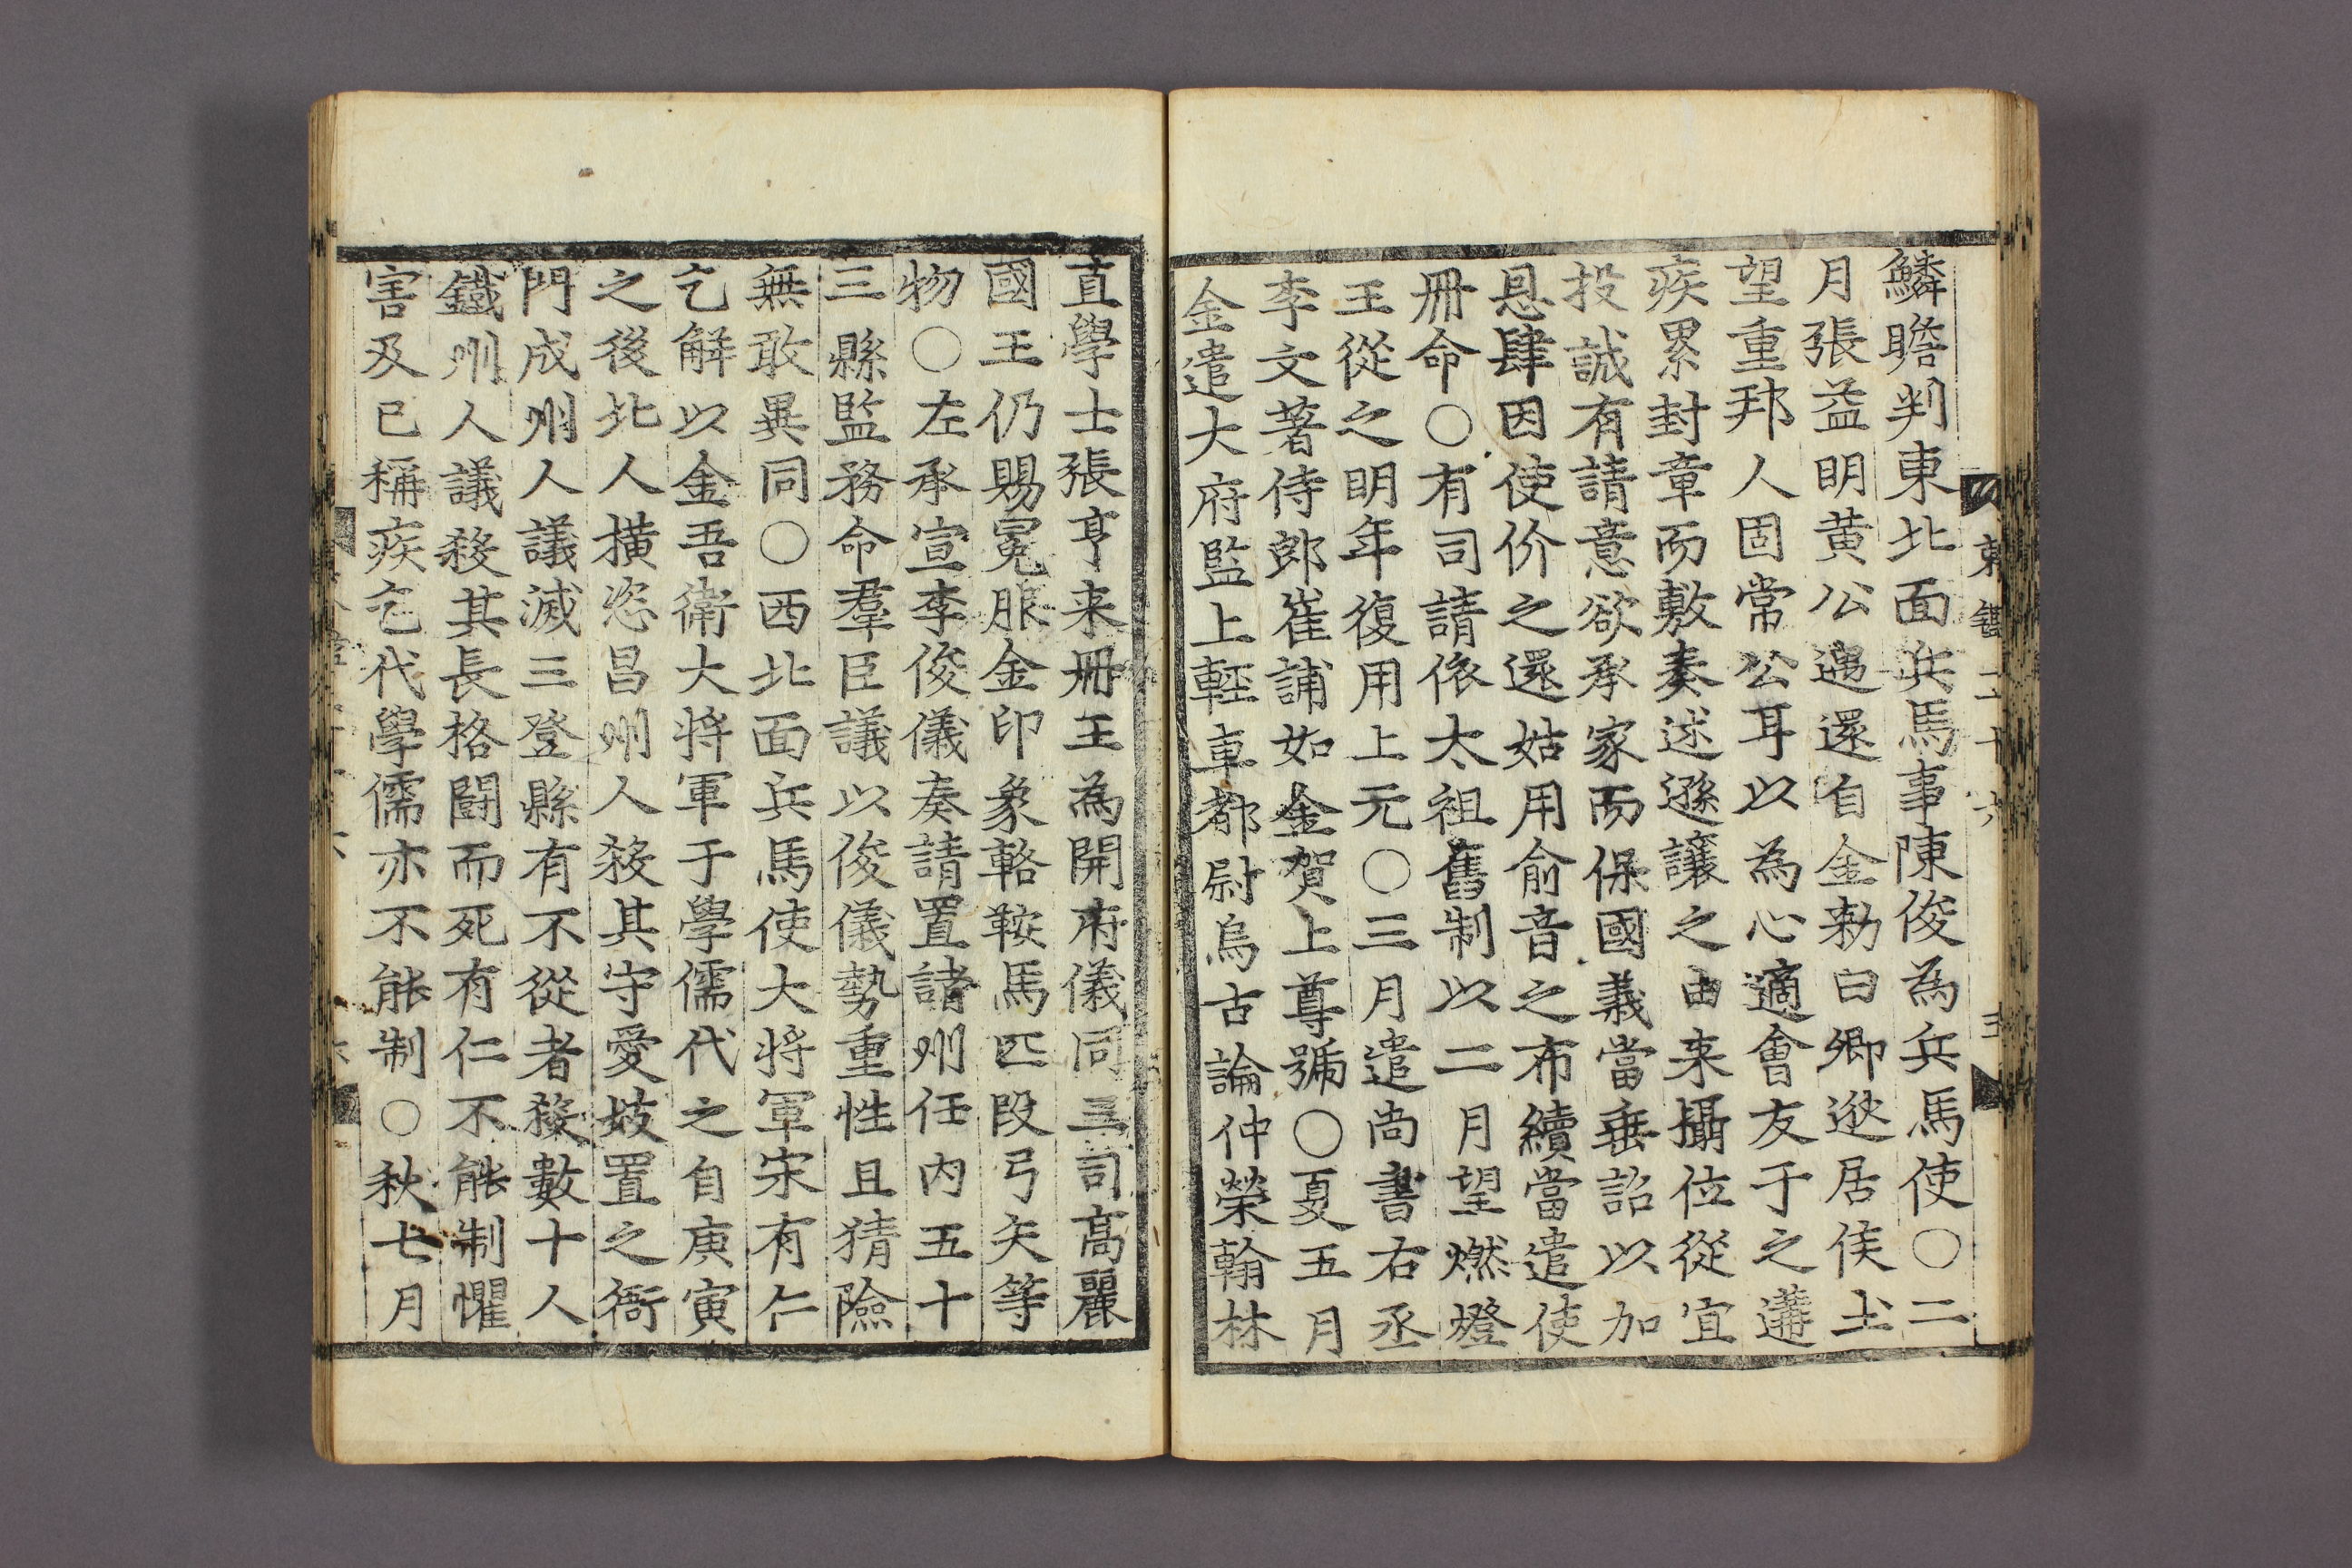 鱗瞻判東北面兵馬事陳俊為兵馬使○二
月張益明黃公遇還自金勑曰卿逖居侯土
望重邦人固常公耳以為心適會友于之遘
疾累封章而敷奏述遜讓之由来攝位從宜
投誠有請意欲承家而保國義當垂詔以加
恩肆因使价之還姑用俞音之布續當遣使
冊命○有司請依太祖舊制以二月望燃燈
王從之明年復用上元○三月遣尚書右丞
李文著侍郎崔誧如金賀上尊號○夏五月
金遣大府監上輕車都尉烏古論仲榮翰林
東鑑二十六
直學士張亨来冊王為開府儀同三司高麗
國王仍賜冕服金印象輅鞍馬匹段弓矢等
物○左承宣李俊儀奏請置諸州任内五十
三縣監務命羣臣議以俊儀勢重性且猜險
無敢異同○西北面兵馬使大将軍宋有仁
乞解以金吾衛大将軍于學儒代之自庚寅
之後北人横恣昌州人殺其守愛妓置之衙
門成州人議滅三登縣有不從者殺數十人
鐵州人議殺其長格鬪而死有仁不能制懼
害及已稱疾乞代學儒亦不能制○秋七月